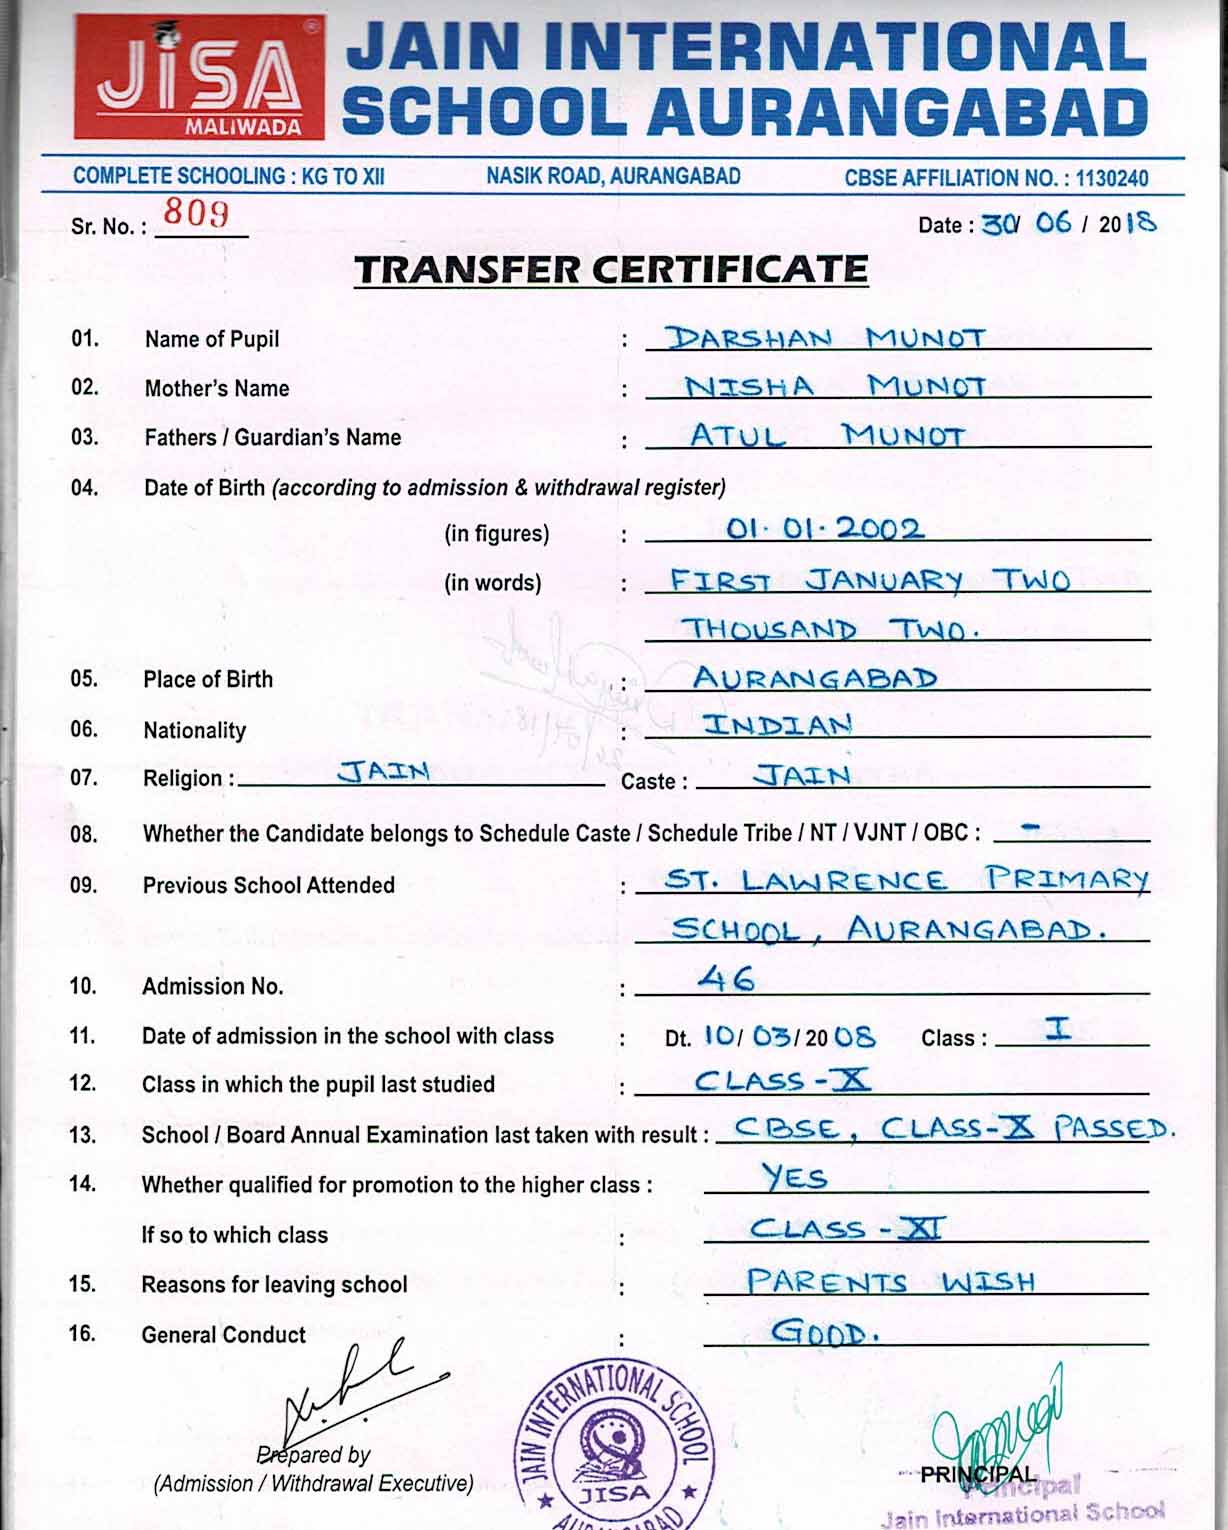 JiSA ®
MALiWADA
JAIN INTERNATIONAL
SCHOOL AURANGABAD
COMPLETE SCHOOLING : KG TO XII NASIK ROAD, AURANGABAD CBSE AFFILIATION NO. : 1130240
Sr. No. : 809 Date : 30/ 06 / 2018
TRANSFER CERTIFICATE
01. Name of Pupil : DARSHAN MUNOT
02. Mother's Name : NISHA MUNOT
03. Fathers / Guardian's Name : ATUL MUNOT
04. Date of Birth (according to admission & withdrawal register)
(in figures) : 01.01.2002
(in words) : FIRST JANUARY TWO
THOUSAND TWO.
05. Place of Birth : AURANGABAD
06. Nationality : INDIAN
07. Religion : JAIN Caste : JAIN
08. Whether the Candidate belongs to Schedule Caste / Schedule Tribe / NT / VJNT / OBC : -
09. Previous School Attended : ST. LAWRENCE PRIMARY
SCHOOL, AURANGABAD.
10. Admission No. : 46
11. Date of admission in the school with class : Dt. 10/ 03/ 2008 Class : I
12. Class in which the pupil last studied : CLASS - X
13. School / Board Annual Examination last taken with result : CBSE, CLASS-X PASSED.
14. Whether qualified for promotion to the higher class : YES
If so to which class : CLASS - XI
15. Reasons for leaving school : PARENTS WISH
16. General Conduct : GOOD.
Prepared by
(Admission / Withdrawal Executive)
JAIN INTERNATIONAL SCHOOL
JISA
AURANGABAD
PRINCIPAL
Principal
Jain International School